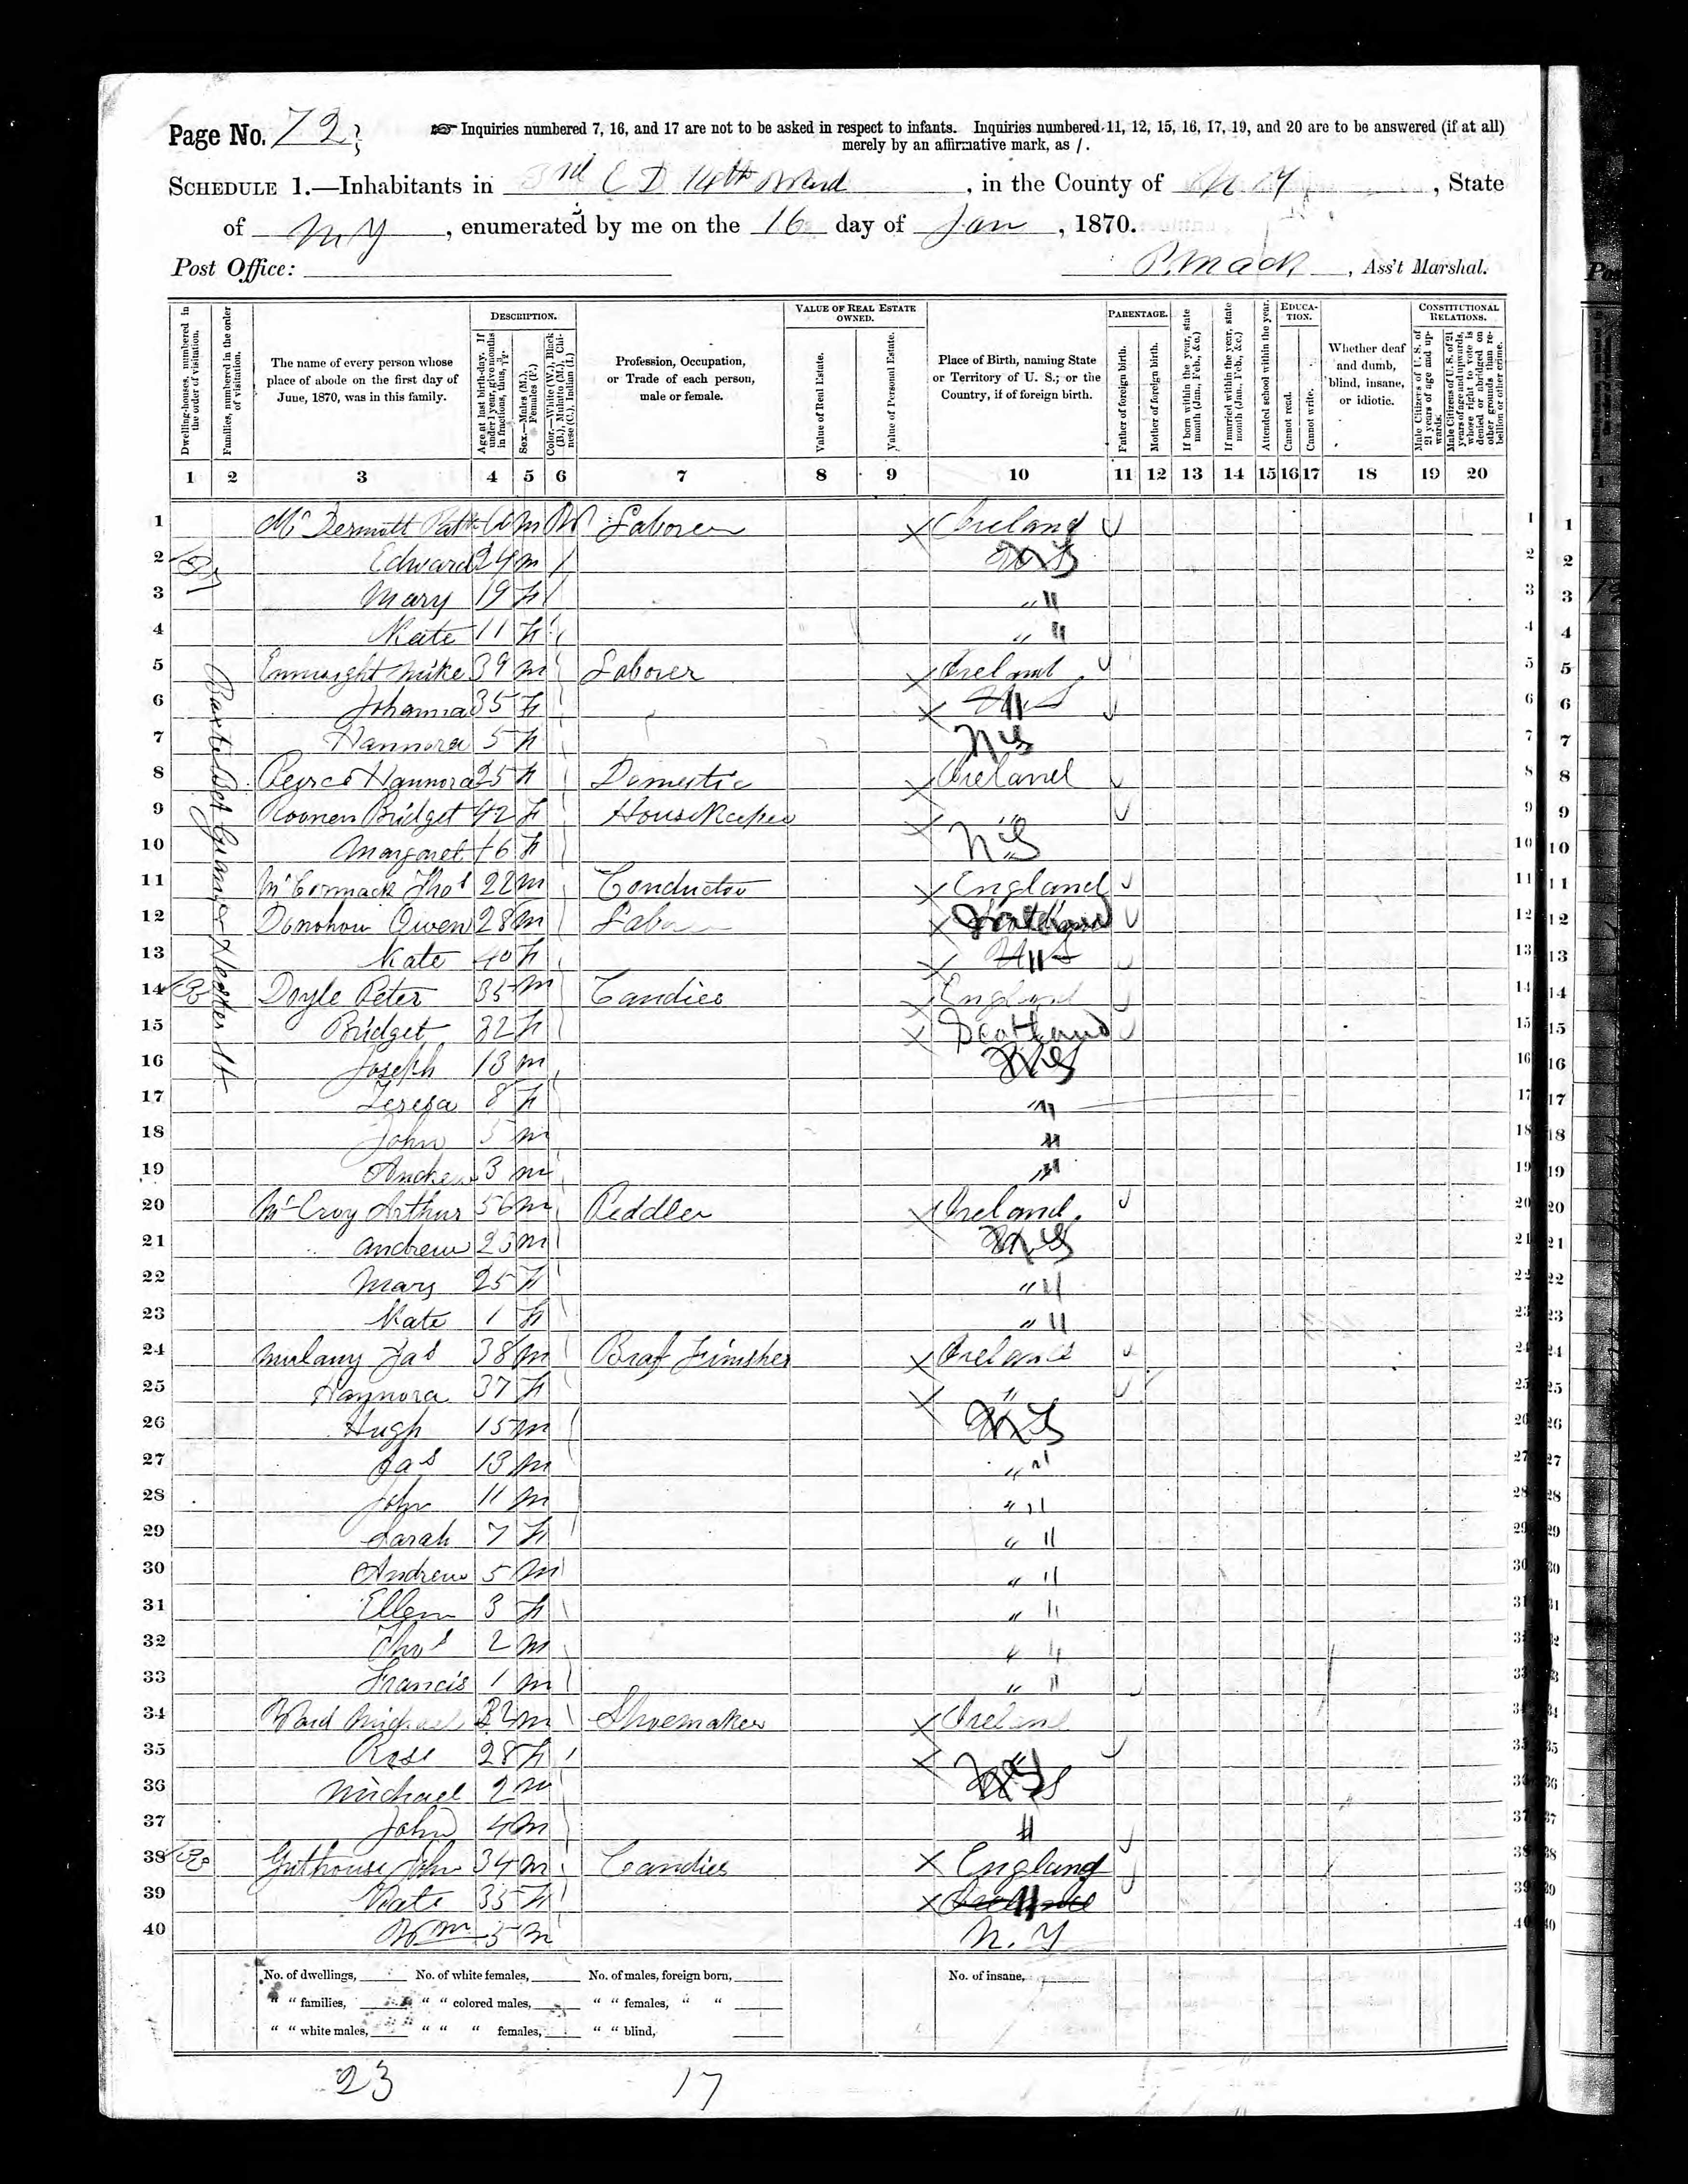 Page No. 72
☞ Inquiries numbered 7, 16, and 17 are not to be asked in respect to infants. Inquiries numbered 11, 12, 15, 16, 17, 19, and 20 are to be answered (if at all)
merely by an affirmative mark, as /.
SCHEDULE 1.—Inhabitants in 3rd E D 14th Ward, in the County of N Y, State
of N Y, enumerated by me on the 16 day of Jan, 1870.
Post Office: P. Mack, Ass't Marshal.
Dwelling-houses, numbered in the order of visitation.
Families, numbered in the order of visitation.
The name of every person whose place of abode on the first day of June, 1870, was in this family.
DESCRIPTION.
Age at last birth-day. If under 1 year, give months in fractions, thus, 3/12.
Sex.—Males (M.), Females (F.)
Color.—White (W.), Black (B.), Mulatto (M.), Chinese (C.), Indian (I.)
Profession, Occupation, or Trade of each person, male or female.
VALUE OF REAL ESTATE OWNED.
Value of Real Estate.
Value of Personal Estate.
Place of Birth, naming State or Territory of U. S.; or the Country, if of foreign birth.
PARENTAGE.
Father of foreign birth.
Mother of foreign birth.
If born within the year, state month (Jan., Feb., &c.)
If married within the year, state month (Jan., Feb., &c.)
Attended school within the year.
EDUCATION.
Cannot read.
Cannot write.
Whether deaf and dumb, blind, insane, or idiotic.
CONSTITUTIONAL RELATIONS.
Male Citizens of U. S. of 21 years of age and upwards.
Male Citizens of U. S. of 21 years of age and upwards, whose right to vote is denied or abridged on other grounds than rebellion or other crime.
1 2 3 4 5 6 7 8 9 10 11 12 13 14 15 16 17 18 19 20
1 McDermott Patk M W Laborer Ireland 1
2 Edward 24 M N Y 2
3 Mary 19 F " " 3
4 Kate 11 F " " 4
5 Enmight Mike 39 M Laborer Ireland 5
6 Johanna 35 F " 6
7 Hannora 5 F N Y 7
8 Peirce Hannora 25 F Domestic Ireland 8
9 Roonen Bridget 42 F HouseKeeper " 9
10 Margaret 16 F N Y 10
11 McCormack Thos 22 M Conductor England 11
12 Donohou Owen 28 M Labo 12
13 Kate 40 F " 13
14 Doyle Peter 35 M Candies England 14
15 Bridget 32 F Scotland 15
16 Joseph 13 M N Y 16
17 Teresa 8 F " 17
18 John 5 M " 18
19 Andrew 3 M " 19
20 McCroy Arthur 56 M Peddler Ireland 20
21 Andrew 23 M N Y 21
22 Mary 25 F " " 22
23 Kate 1 F " " 23
24 Mulany Jas 38 M Brass Finisher Ireland 24
25 Hannora 37 F " 25
26 Hugh 15 M N Y 26
27 Jas 13 M " " 27
28 John 11 M " " 28
29 Sarah 7 F " " 29
30 Andrew 5 M " " 30
31 Ellen 3 F " " 31
32 Thos 2 M " " 32
33 Francis 1 M " " 33
34 Ward Michael 32 M Shoemaker Ireland 34
35 Rose 28 F " 35
36 Michael 2 M N Y 36
37 John 4 M " 37
38 Guthouse John 34 M Candies England 38
39 Kate 35 F " 39
40 Wm 5 M N. Y 40
Baxter Bet Grand & Hester St
No. of dwellings, No. of white females, No. of males, foreign born, No. of insane,
" " families, " " colored males, " " females, " "
" " white males, " " " females, " " blind,
23 17